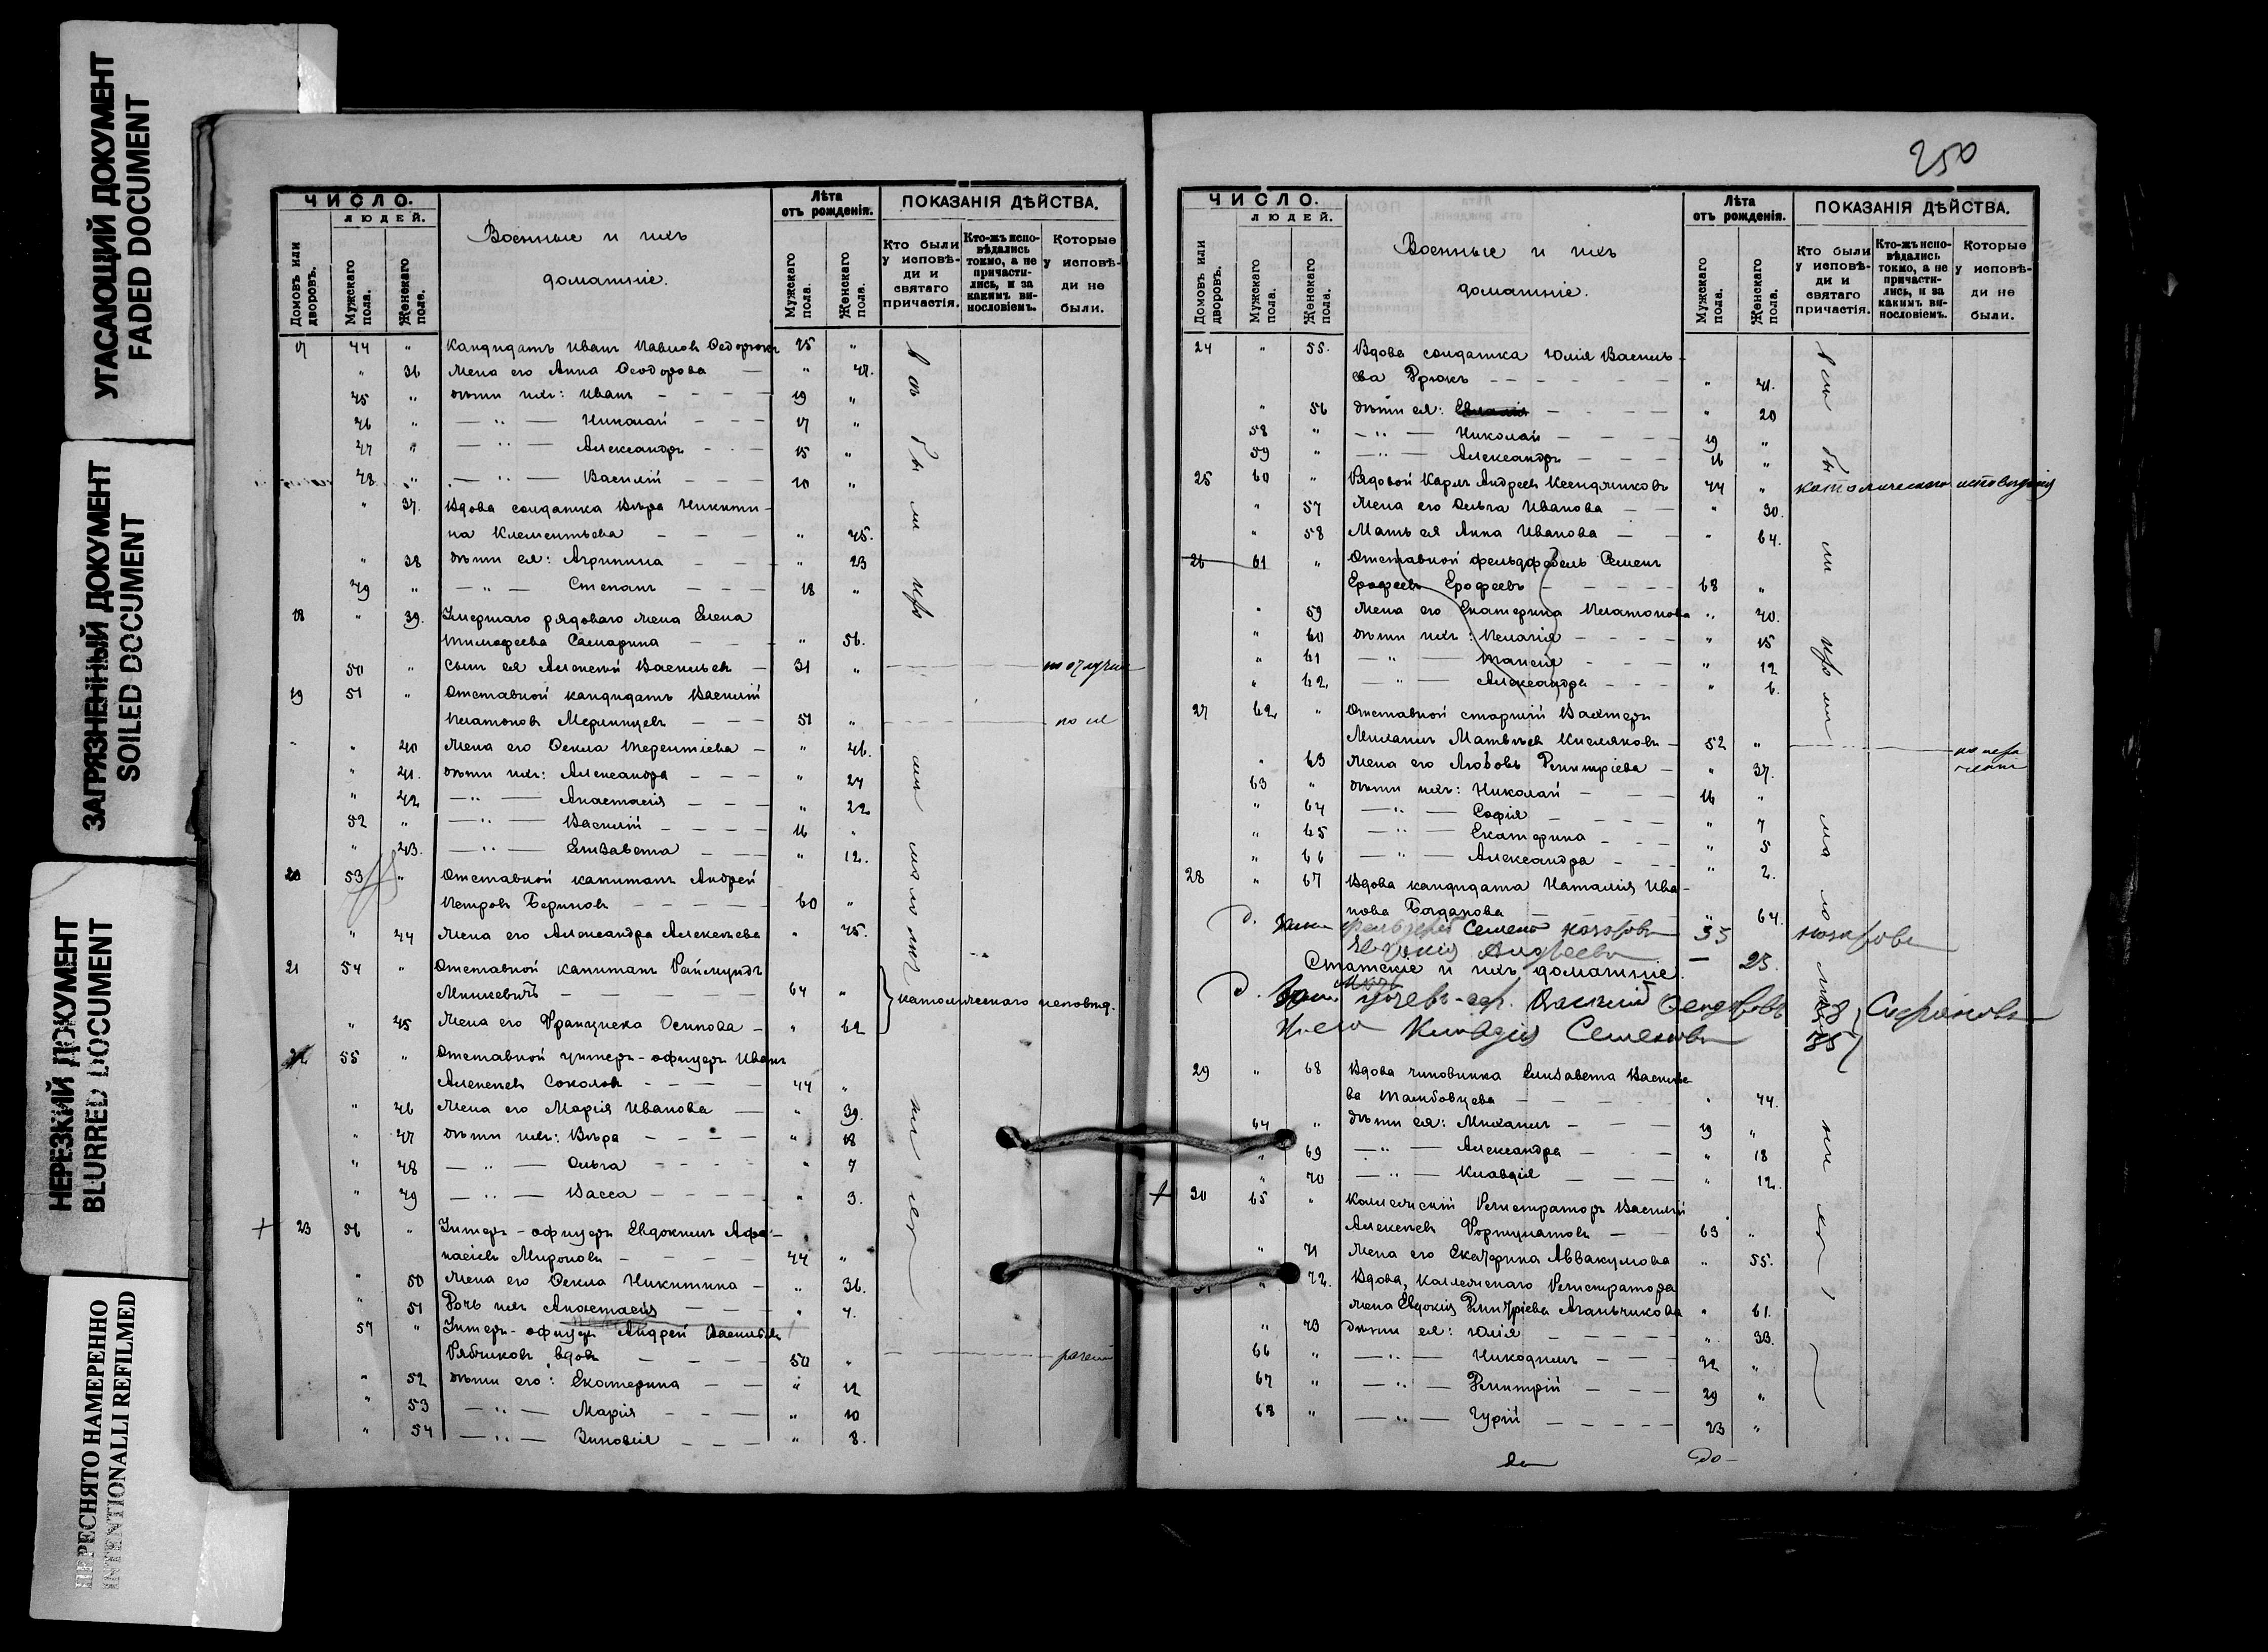 УГАСАЮЩИЙ ДОКУМЕНТ
FADED DOCUMENT
ЗАГРЯЗНЕННЫЙ ДОКУМЕНТ
SOILED DOCUMENT
НЕРЕЗКИЙ ДОКУМЕНТ
BLURRED DOCUMENT
ПЕРЕСНЯТО НАМЕРЕННО
INTENTIONALLI REFILMED
ЧИСЛО.
ЛЮДЕЙ.
Домовъ или дворовъ.
Мужскаго пола.
Женскаго пола.
Военные и ихъ
домашніе.
Лѣта
отъ рожденія.
Мужскаго пола.
Женскаго пола.
ПОКАЗАНІЯ ДѢЙСТВА.
Кто были у исповѣди и святаго причастія.
Кто-жъ исповѣдались токмо, а не причастились, и за какимъ винословіемъ.
Которые у исповѣди не были.
17 44 " Кандидатъ Иванъ Павловъ 45 "
" 36 Жена его Анна Ѳеодорова — " 42.
45 " дѣти ихъ: Иванъ — 19 "
46 " — " — Николай — 17 "
47 " — " — Александръ — 15 "
48 " — " — Василій — 10 "
" 37. Вдова солдатка Вѣра Никити-
на Клементьева — " 45.
" 38 дѣти ея: Агрипина — " 23
49 " — " — Степанъ — 18 "
18 " 39. Умершаго рядоваго жена Елена
Тимофеева Самарина — " 56.
50 " сынъ ея Алексѣй Васильевъ — 31 "
19 51 " Отставной кандидатъ Василій
Платоновъ 51 "
" 40 Жена его Ѳекла Терентіева — " 46.
" 41. дѣти ихъ: Александра — " 24
" 42 — " — Анастасія — " 22
52 " — " — Василій — 16 "
" 43. — " — Елизавета — " 12.
20 53 " Отставной капитанъ Андрей
Петровъ Бериновъ — 60 "
" 44 Жена его Александра Алексѣева " 45.
21 54 " Отставной капитанъ Раймундъ
Минкевичъ — 64 " католическаго исповѣд.
" 45 Жена его Франциска Осипова — " 62
22 55 " Отставной унтеръ-офицеръ Иванъ
Алексѣевъ Соколовъ — 44 "
" 46 Жена его Марія Иванова — " 39.
" 47 дѣти ихъ: Вѣра — " 18
" 48 — " — Ольга — " 7
" 49 — " — Васса — " 3.
+ 23 56 " Унтеръ-офицеръ Евдокимъ Афа-
насіевъ Мироновъ — 44 "
" 50 Жена его Ѳекла Никитина — " 36.
" 51 Дочь ихъ Анастасія — " 4.
57 " Унтеръ-офицеръ Андрей Васильевъ
Рябчиковъ, вдовъ — 50 "
" 52 дѣти его: Екатерина — " 12
" 53 — " — Марія — " 10
" 54 — " — Зиновія — " 8.
250
ЧИСЛО.
ЛЮДЕЙ.
Домовъ или дворовъ.
Мужскаго пола.
Женскаго пола.
Военные и ихъ
домашніе.
Лѣта
отъ рожденія.
Мужскаго пола.
Женскаго пола.
ПОКАЗАНІЯ ДѢЙСТВА.
Кто были у исповѣди и святаго причастія.
Кто-жъ исповѣдались токмо, а не причастились, и за какимъ винословіемъ.
Которые у исповѣди не были.
24 " 55. Вдова солдатка Юлія Василь-
ева — " 41.
" 56 дѣти ея: — " 20
58 " — " — Николай — 19 "
59 " — " — Александръ — 16 "
25 60 " Рядовой Карлъ Андреевъ 44 " католическаго исповѣданія
" 57 Жена его Ольга Иванова — " 30.
" 58 Мать ея Анна Иванова — " 64.
26 61 " Отставной фельдфебель Семенъ
Ерофеевъ Ерофеевъ — 68 "
" 59 Жена его Екатерина Платонова " 40.
" 60 дѣти ихъ: Пелагія — " 15
" 61 — " — Таисія — " 12
" 62 — " — Александра — " 6.
27 62 " Отставной старшій Вахтеръ
Михаилъ Матвѣевъ Кисляковъ — 52 "
" 63 Жена его Любовь Димитріева — " 37.
63 " дѣти ихъ: Николай — 16 "
" 64 — " — Софія — " 7
" 65 — " — Екатерина — " 5
" 66 — " — Александра — " 2.
28 " 67 Вдова кандидата Наталія Ива-
нова Богданова — " 64.
Семенъ 35
Андреева — 25.
Статскіе и ихъ домашніе.
Василій
Клавдія Семенова
29 " 68 Вдова чиновника Елизавета Василье-
ва Тамбовцева — " 44.
64 " дѣти ея: Михаилъ — 19 "
" 69 — " — Александра — " 18
" 70 — " — Клавдія — " 12.
+ 30 65 " Коллежскій Регистраторъ Василій
Алексѣевъ Фортунатовъ — 63 "
" 71 Жена его Екатерина Аввакумова " 55.
" 72. Вдова, Коллежскаго Регистратора
жена Евдокія Димитріева " 61.
" 73 дѣти ея: Юлія — " 33.
66 " — " — Никодимъ — 32 "
67 " — " — Димитрій — 29 "
68 " — " — Гурій — 23 "